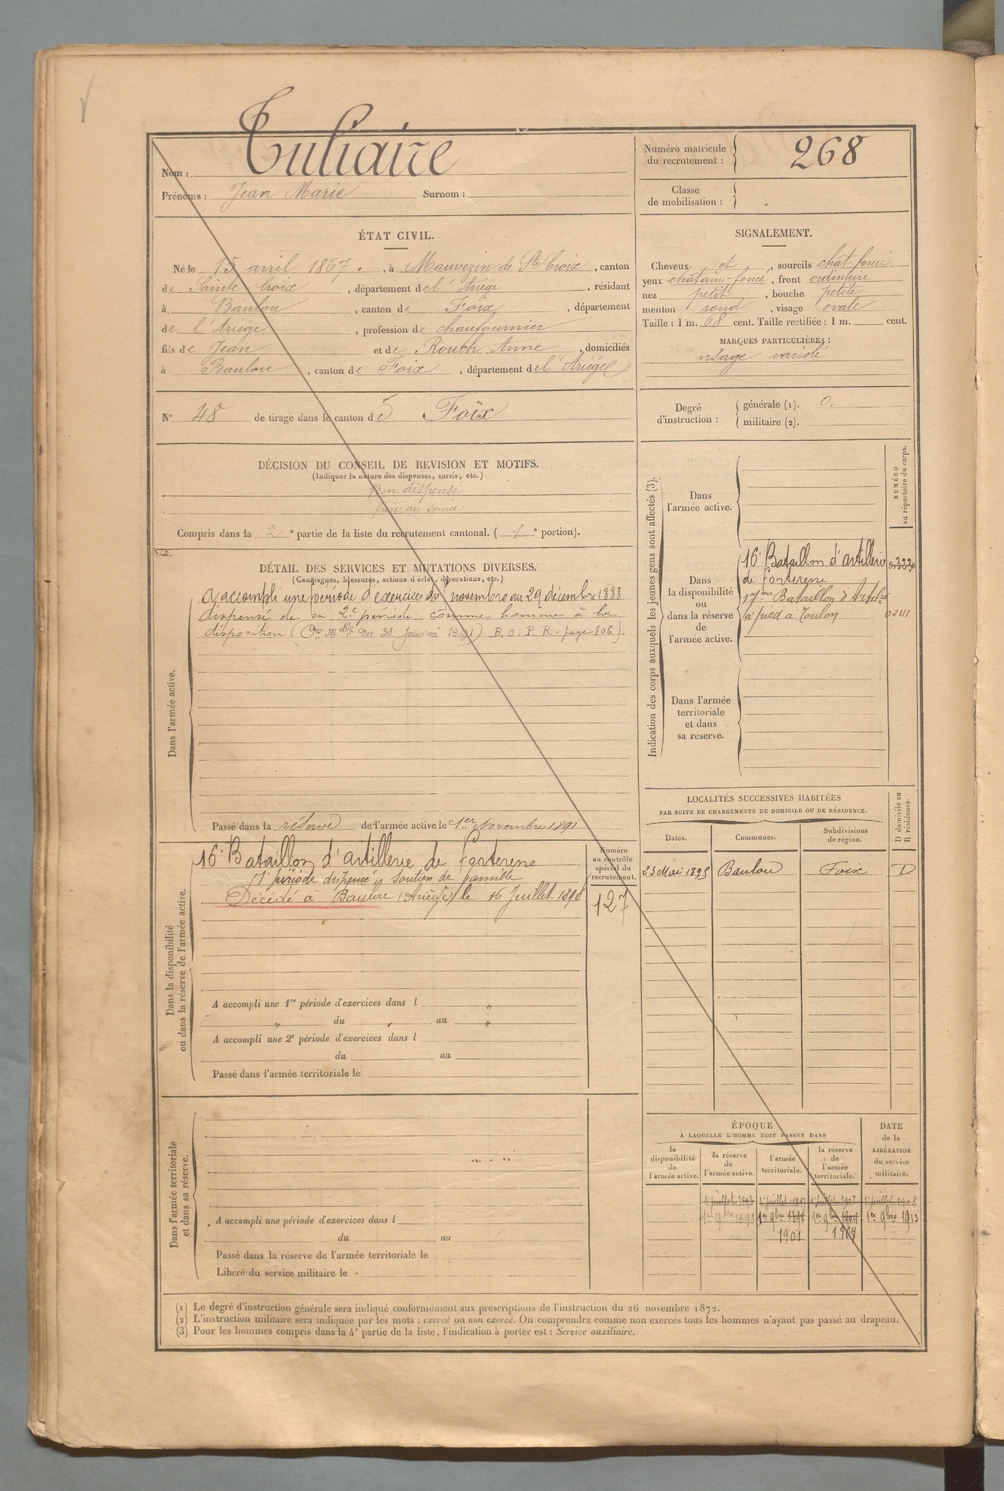 Nom : Tuliaire
Prénoms : Jean Marie Surnom :
Numéro matricule
du recrutement : 268
Classe
de mobilisation :
ÉTAT CIVIL.
Né le 15 avril 1867, à Mauvezin de Ste Croix, canton
de Sainte Croix, département de l'Ariége, résidant
à Baulou, canton de Foix, département
de l'Ariége, profession de chaufournier
fils de Jean et de Rouch Anne, domiciliés
à Baulou, canton de Foix, département de l'Ariége
N° 48 de tirage dans le canton de Foix
SIGNALEMENT.
Cheveux et, sourcils chat. foncé
yeux chatain-foncé, front ordinaire
nez petit, bouche petite
menton rond, visage ovale
Taille : 1 m. 68 cent. Taille rectifiée : 1 m. cent.
MARQUES PARTICULIÈRES :
visage variolé
Degré
d'instruction :
générale (1). 0.
militaire (2).
DÉCISION DU CONSEIL DE REVISION ET MOTIFS.
(Indiquer la nature des dispenses, sursis, etc.)
Bon dispensé
frère au service
Compris dans la 2e partie de la liste du recrutement cantonal. (1e portion).
DÉTAIL DES SERVICES ET MUTATIONS DIVERSES.
(Campagnes, blessures, actions d'éclat, décorations, etc.)
Dans l'armée active.
A accompli une période d'exercices du novembre au 29 décembre 1888
dispensé de sa 2e période comme homme à la
disposition ( du 31 janvier 1891) B.O. P.R. page 106).
Passé dans la réserve de l'armée active le 1er Novembre 1891
Dans la disponibilité
ou dans la réserve de l'armée active.
16e Bataillon d'artillerie de forteresse
1e période dispensé soutien de famille
Décédé à Baulou (Ariège) le 16 Juillet 1898
Numéro
au contrôle
spécial du
recrutement.
127
A accompli une 1re période d'exercices dans l "
" du " au "
A accompli une 2e période d'exercices dans l
du au
Passé dans l'armée territoriale le
Dans l'armée territoriale
et dans sa réserve.
A accompli une période d'exercices dans l
du au
Passé dans la réserve de l'armée territoriale le
Libéré du service militaire le
Indication des corps auxquels les jeunes gens sont affectés (3).
NUMÉRO
au répertoire du corps.
Dans
l'armée active.
Dans
la disponibilité
ou
dans la réserve
de
l'armée active.
16e Bataillon d'artillerie
de forteresse
17ème Bataillon d'Artie
à pied à Toulon
02111
Dans l'armée
territoriale
et dans
sa réserve.
LOCALITÉS SUCCESSIVES HABITÉES
PAR SUITE DE CHANGEMENTS DE DOMICILE OU DE RÉSIDENCE.
D domicile ou
R résidence.
Dates. Communes. Subdivisions
de région.
23 Mai 1895 Baulou Foix D
ÉPOQUE
À LAQUELLE L'HOMME DOIT PASSER DANS
DATE
de la
LIBÉRATION
du service
militaire.
la
disponibilité
de
l'armée active.
la réserve
de
l'armée active.
l'armée
territoriale.
la réserve
de
l'armée
territoriale.
1er 9bre 1913
1901 1907
(1) Le degré d'instruction générale sera indiqué conformément aux prescriptions de l'instruction du 26 novembre 1872.
(2) L'instruction militaire sera indiquée par les mots : exercé ou non exercé. On comprendra comme non exercés tous les hommes n'ayant pas passé au drapeau.
(3) Pour les hommes compris dans la 4e partie de la liste, l'indication à porter est : Service auxiliaire.